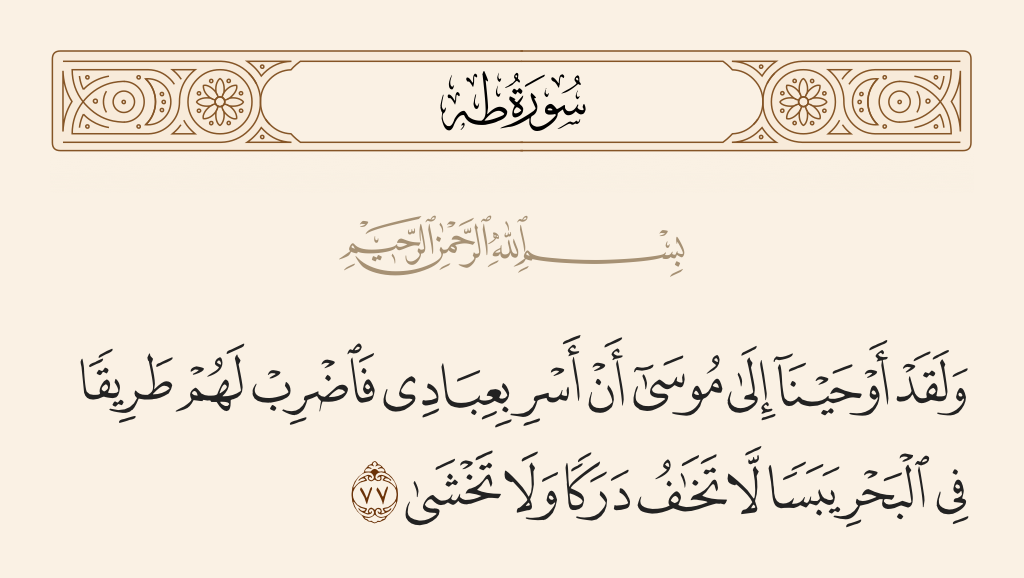 سُورَةُ طه
بِسْمِ ٱللَّهِ ٱلرَّحْمَٰنِ ٱلرَّحِيمِ
وَلَقَدْ أَوْحَيْنَآ إِلَىٰ مُوسَىٰٓ أَنْ أَسْرِ بِعِبَادِى فَٱضْرِبْ لَهُمْ طَرِيقًا
فِى ٱلْبَحْرِ يَبَسًا لَّا تَخَٰفُ دَرَكًا وَلَا تَخْشَىٰ ٧٧